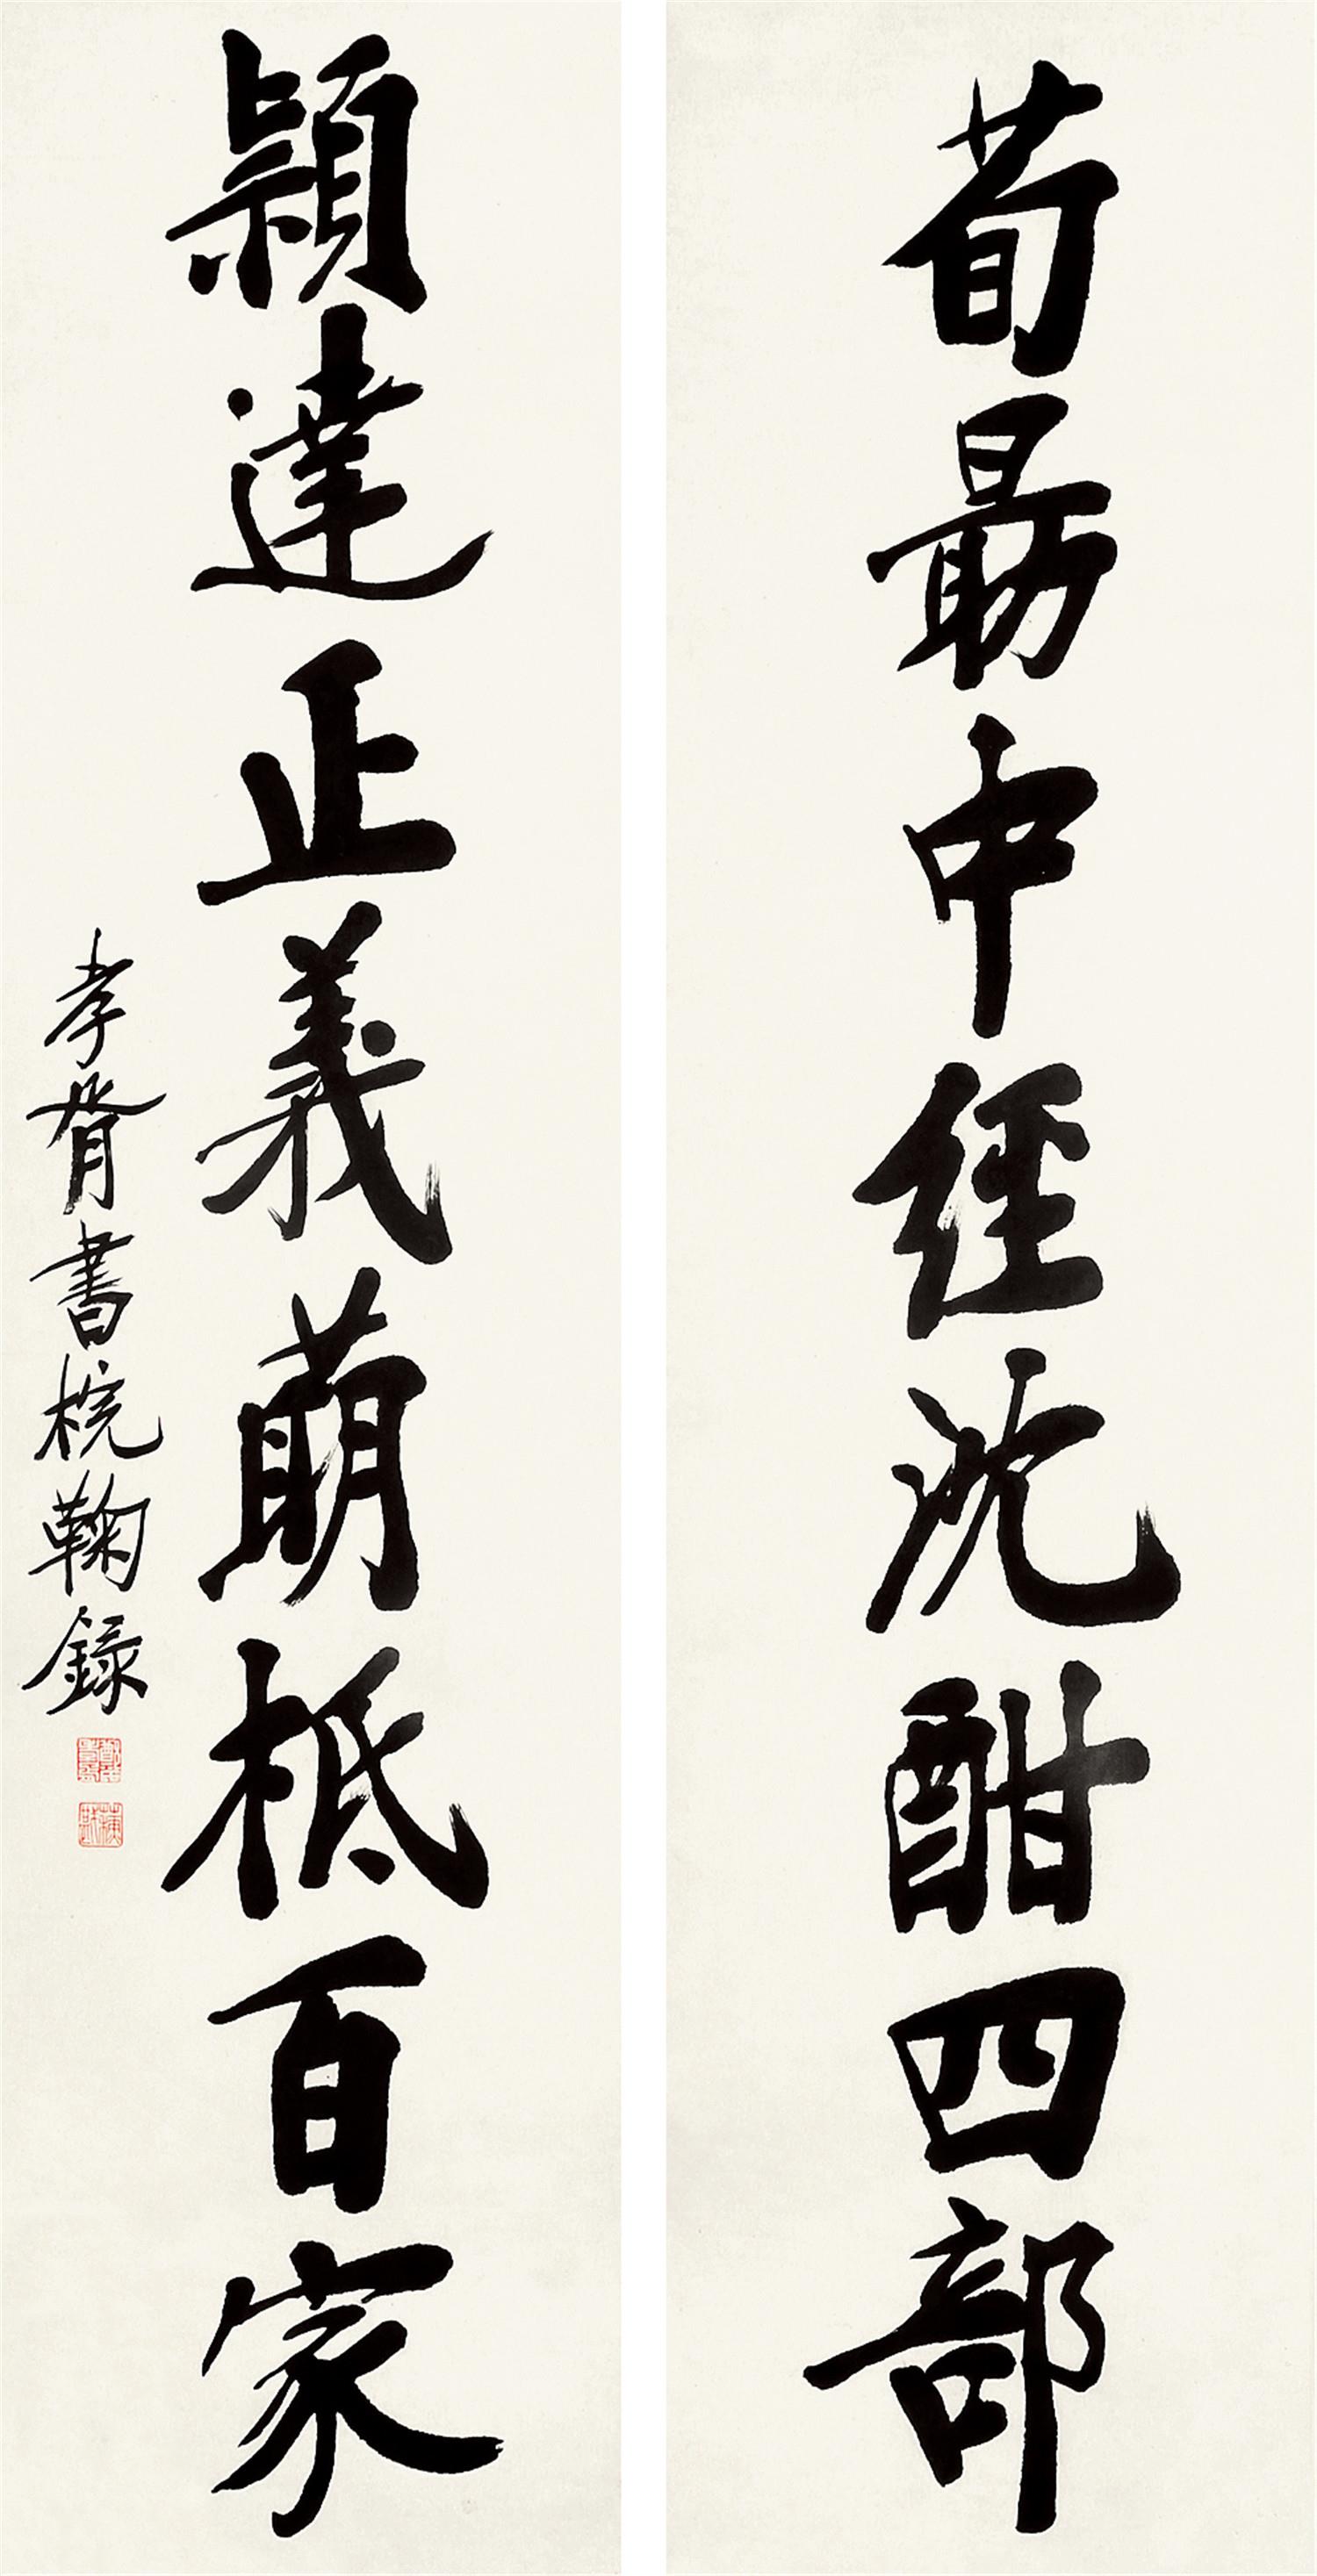 荀勗中經沈酣四部
穎達正義萌柢百家
孝胥書梡鞠錄